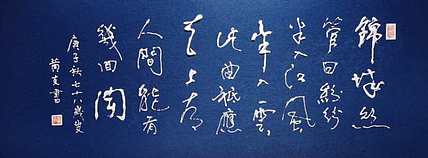 錦城絲
管日紛紛
半入江風
半入雲
此曲祇應
天上有
人間能有
幾回聞
庚子秋七十八歲叟
書